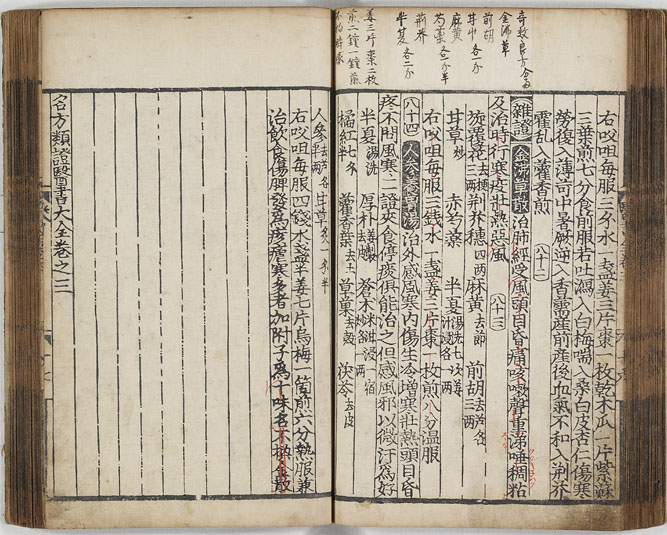 奇效良方
金沸草
前胡
甘艸各一分
麻黄
芍薬各一分半
荊芥
半夏各二分
姜三片棗二枚
煎二鐘一鐘煎
不拘時服
右㕮咀每服三錢水一盞姜三片棗一枚乾木瓜一片紫蘇
三葉煎七分食前服若吐瀉入白梅喘入桑白皮杏仁傷寒
勞復入薄苛中暑厥逆入香薷産前産後血氣不和入荆芥
霍乱入藿香煎 八十二
雜證 金沸草散治肺經受風頭目昏痛咳嗽聲重涕唾稠粘
及治時行寒疫壯熱惡風 八十三
旋覆花去梗三兩 荆芥穗四兩 麻黄去節 前胡去芦各三兩
甘草炒 赤芍藥 半夏湯洗七次姜汁浸各
右㕮咀每服三錢水一盞姜三片棗一枚煎八分温服
八十四 人參養胃湯 治外感風寒内傷生冷增寒壯熱頭目昏
疼不問風寒二證夾食停痰俱能治之但感風邪以微汗爲好
半夏湯洗 厚朴去皮姜製 蒼朮米泔浸一宿
橘紅七錢半 藿香葉去土 草菓去殼 茯苓去皮
人參去芦各半兩 甘草炙一錢半
右㕮咀每服四錢水盞半姜七片烏梅一箇煎六分熱服兼
治飲食傷脾發爲痎瘧寒多者加附子爲十味名不換金散
名方類證醫書大全卷之二